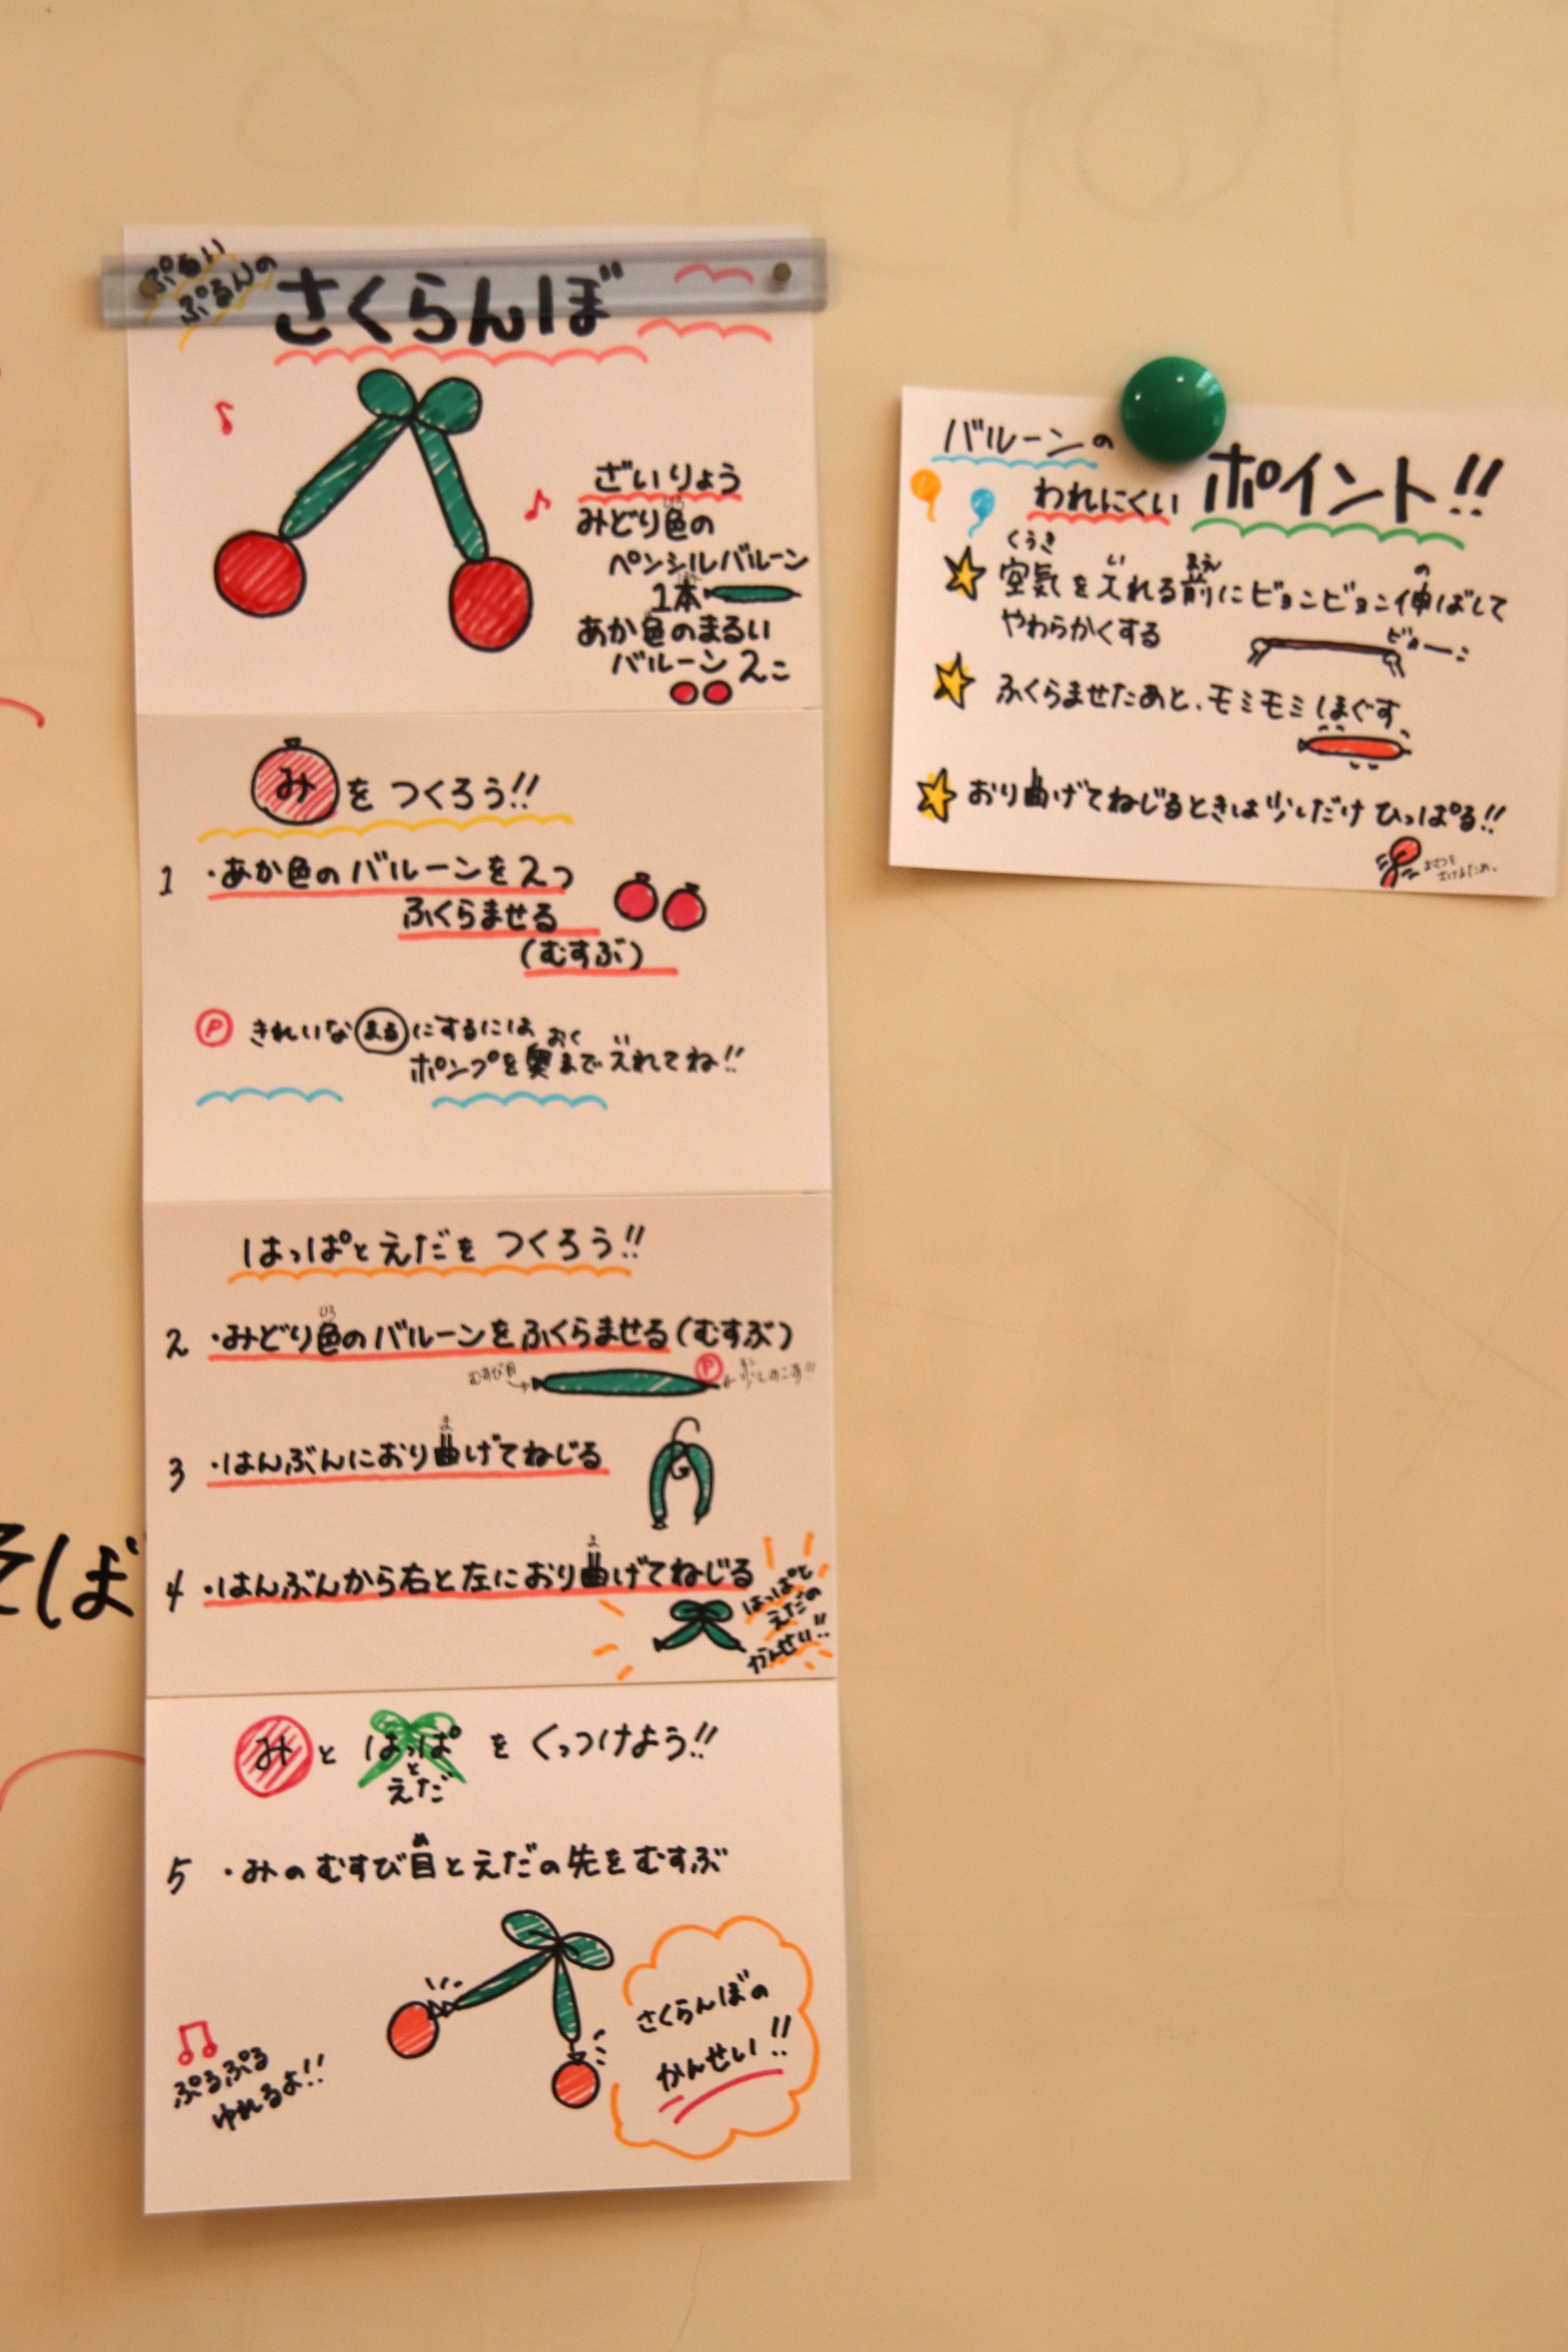 ぷるい
ぷるんの
さくらんぼ
ざいりょう
みどり色の
いろ
ペンシルバルーン
1本
あか色のまるい
バルーン 2こ
みをつくろう!!
1 ・あか色のバルーンを2つ
ふくらませる
(むすぶ)
P きれいなまるにするには
おく い
ポンプを奥まで入れてね!!
はっぱとえだをつくろう!!
いろ
2 ・みどり色のバルーンをふくらませる(むすぶ)
むすび目
P
少しのこす!!
ま
3 ・はんぶんにおり曲げてねじる
ま
4 ・はんぶんから右と左におり曲げてねじる
はっぱと
えだの
かんせい!!
みとはっぱとえだをくっつけよう!!
め
5 ・みのむすび目とえだの先をむすぶ
さくらんぼの
かんせい!!
ぷるぷる
ゆれるよ!!
バルーンの
われにくい
ポイント!!
くうき い まえ の
空気を入れる前にビョンビョン伸ばして
やわらかくする
ビョーン
ふくらませたあと、モミモミほぐす
おり曲げてねじるときは少しだけひっぱる!!
そぼ